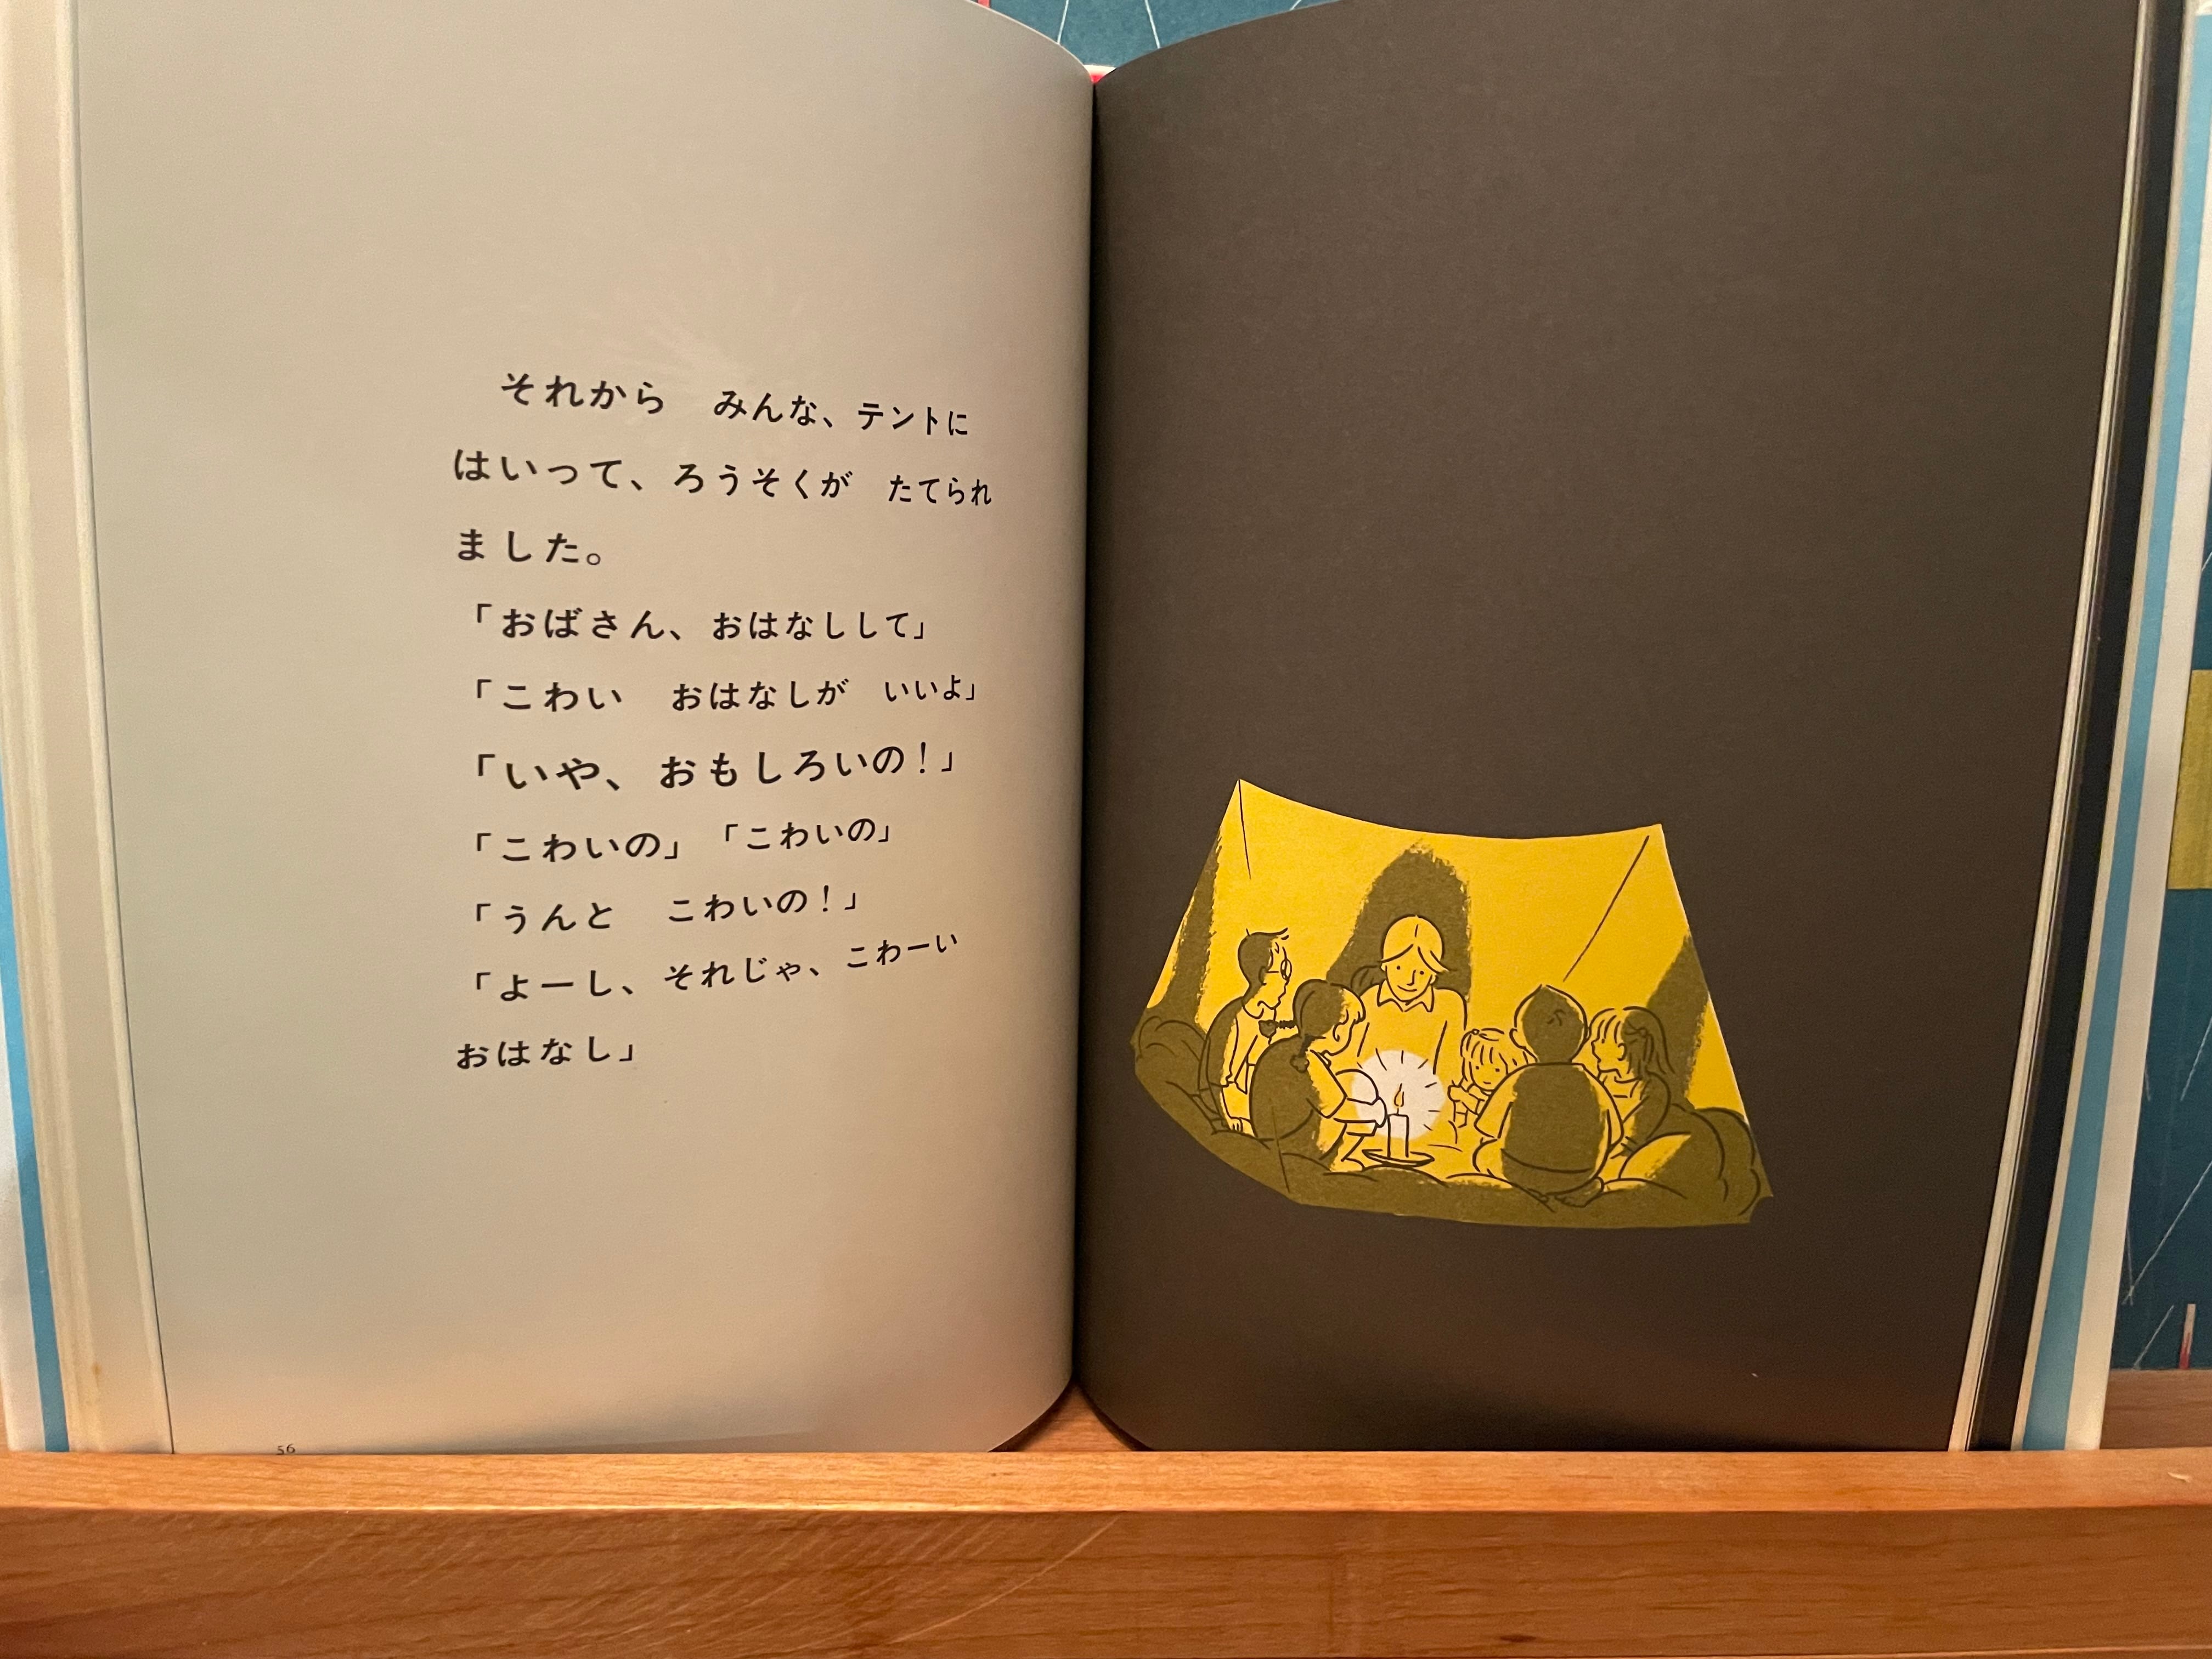 それから　みんな、テントに
はいって、ろうそくが　たてられ
ました。
「おばさん、おはなしして」
「こわい　おはなしが　いいよ」
「いや、おもしろいの！」
「こわいの」「こわいの」
「うんと　こわいの！」
「よーし、それじゃ、こわーい
おはなし」
56